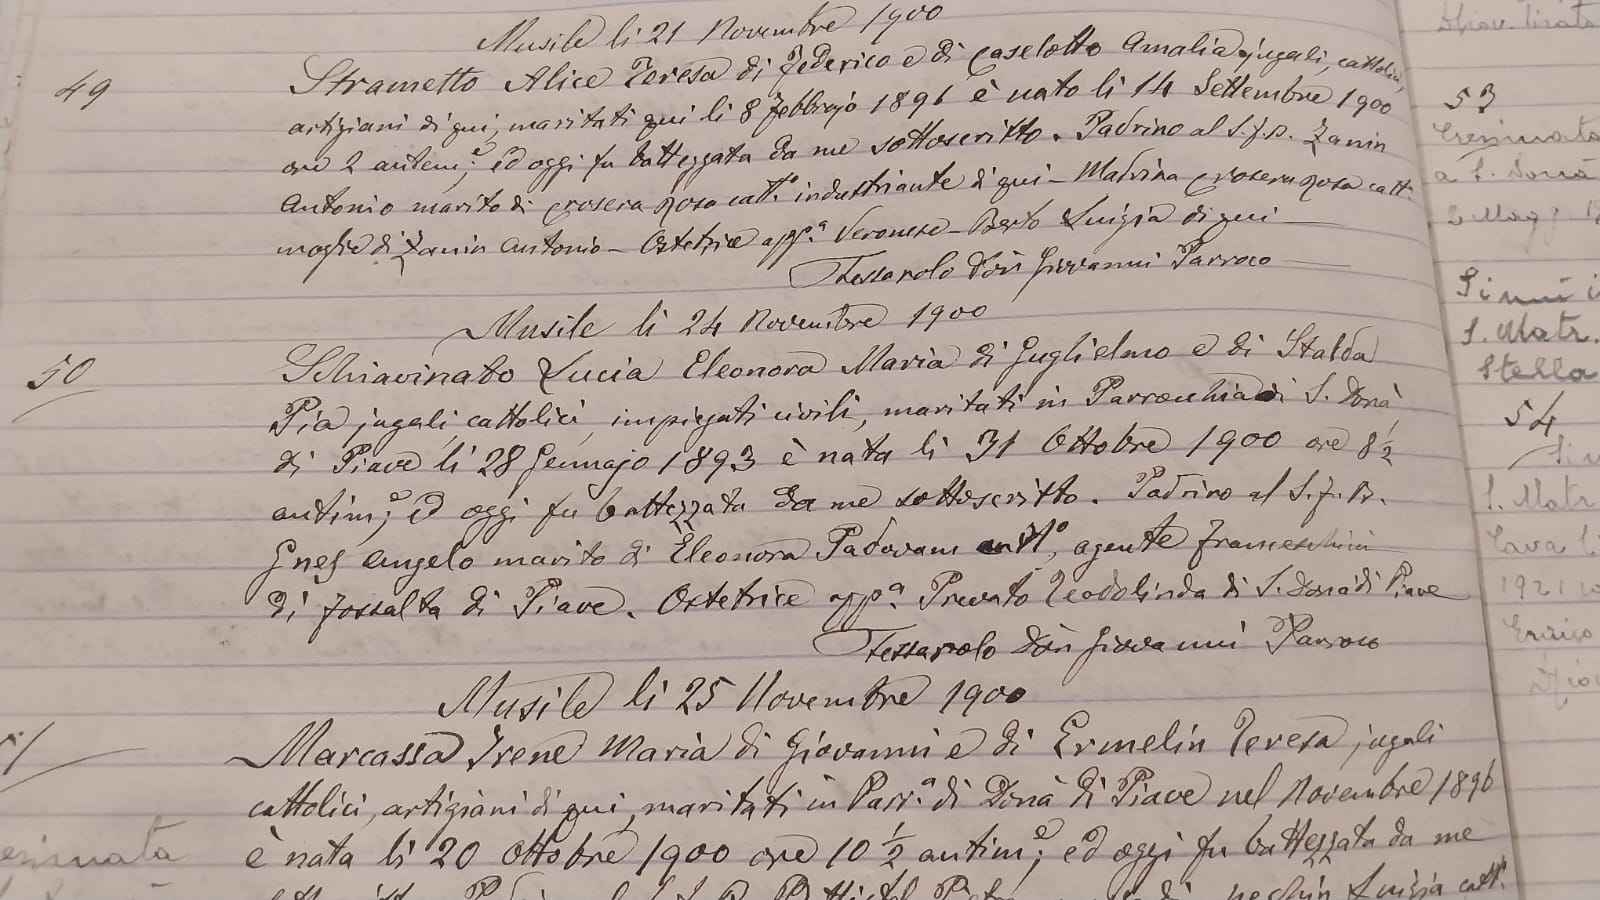 Musile li 21 Novembre 1900
49
Strametto Alice Teresa di Federico e di Caselotto Amalia jugali, cattolici,
artigiani di qui, maritati qui li 8 Febbrajo 1896 è nato li 14 Settembre 1900
ore 2 antim;e ed oggi fu battezzata da me sottoscritto. Padrino al S.F.B. Zanin
Antonio marito di Crosera Rosa catt.o industriante di qui - Madrina Crosera Rosa catt.
moglie di Zanin Antonio - Ostetrice app.a Veronese-Berto Luigia di qui
Tessarolo Don Giovanni Parroco
Musile li 24 Novembre 1900
50
Schiavinato Lucia Eleonora Maria di Guglielmo e di Stalda
Pia jugali cattolici, impiegati civili, maritati in Parrocchia di S. Donà
di Piave li 28 Gennajo 1893 è nata li 31 Ottobre 1900 ore 8 ½
antim;e ed oggi fu battezzata da me sottoscritto. Padrino al S.F.B.
Angelo marito di Eleonora Padovani agente Franceschini
di Fossalta di Piave. Ostetrice app.a Prevato Teodolinda di S. Donà di Piave
Tessarolo Don Giovanni Parroco
Musile li 25 Novembre 1900
Marcassa Irene Maria di Giovanni e di Ermelin Teresa jugali
cattolici, artigiani di qui, maritati in Parr.a di Donà di Piave nel Novembre 1896
è nata li 20 Ottobre 1900 ore 10 ½ antim;e ed oggi fu battezzata da me
Luigia catt.
53
a S. Donà
S. Matr.
Stella
54
S. Matr
1921